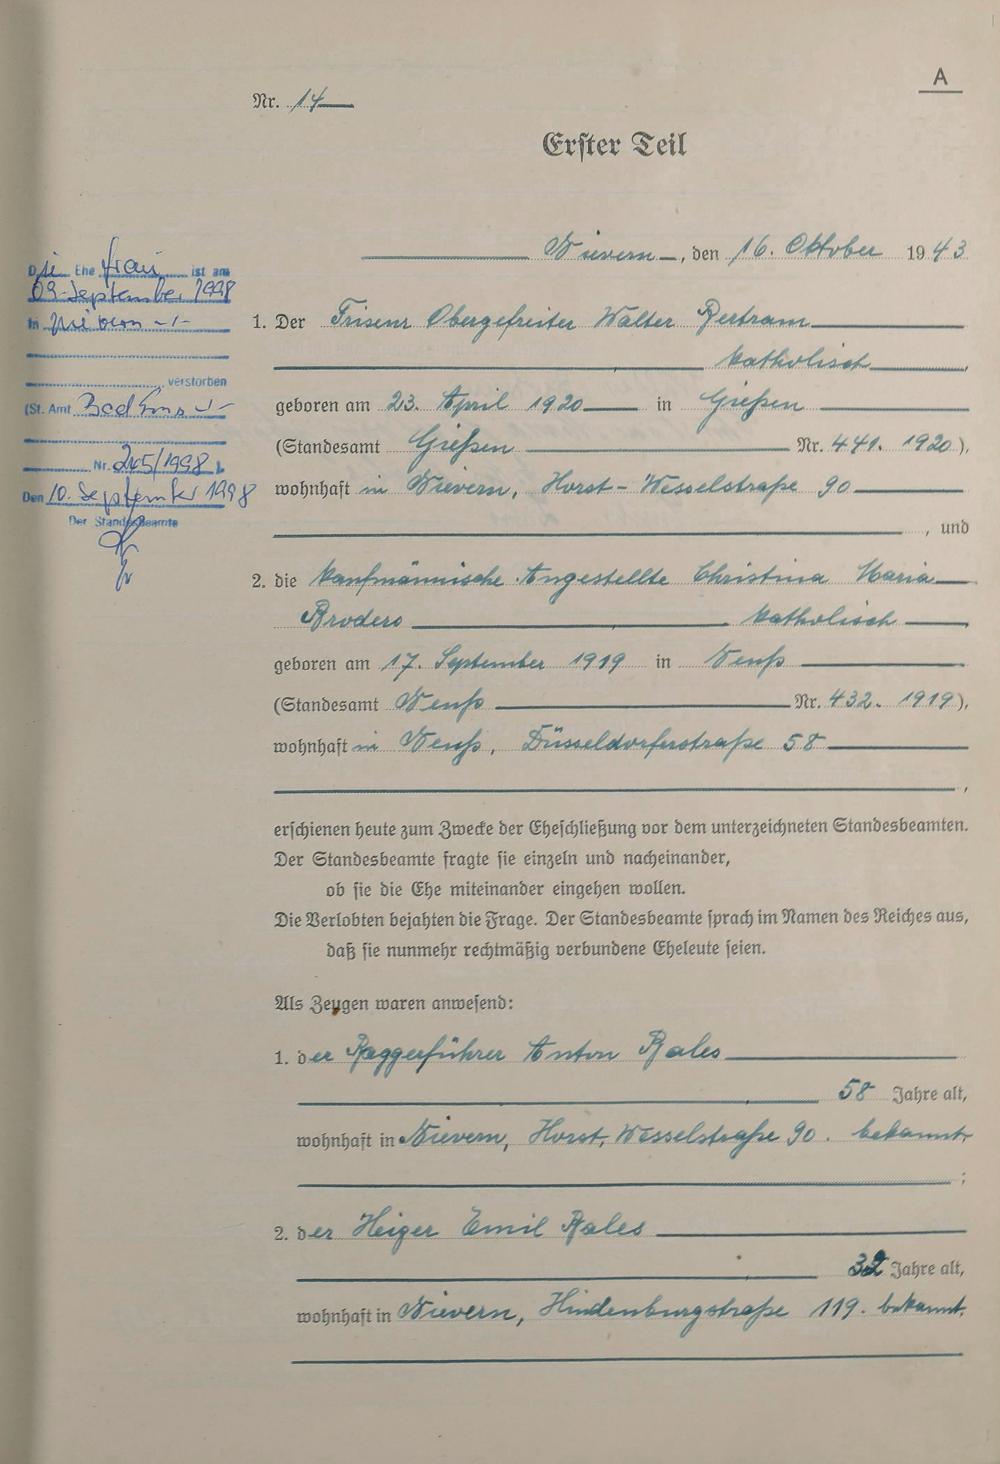 A
Nr. 14
Erster Teil
Nievern, den 16. Oktober 1943
Die Ehefrau ist am
09. September 1998
in Nievern -/-
verstorben
(St. Amt Bad Ems -/-
Nr. 245/1998).
Den 10. September 1998
Der Standesbeamte
1. Der Friseur Obergefreiter Walter Bertram
katholisch,
geboren am 23. April 1920 in Gießen
(Standesamt Gießen Nr. 441. 1920),
wohnhaft in Nievern, Horst-Wesselstraße 90
, und
2. die kaufmännische Angestellte Christina Maria
Broders katholisch,
geboren am 17. September 1919 in Neuß
(Standesamt Neuß Nr. 432. 1919),
wohnhaft in Neuß, Düsseldorferstraße 58
,
erschienen heute zum Zwecke der Eheschließung vor dem unterzeichneten Standesbeamten.
Der Standesbeamte fragte sie einzeln und nacheinander,
ob sie die Ehe miteinander eingehen wollen.
Die Verlobten bejahten die Frage. Der Standesbeamte sprach im Namen des Reiches aus,
daß sie nunmehr rechtmäßig verbundene Eheleute seien.
Als Zeugen waren anwesend:
1. der Baggerführer Anton Bales
58 Jahre alt,
wohnhaft in Nievern, Horst, Wesselstraße 90. bekannt
;
2. der Heizer Emil Bales
32 Jahre alt,
wohnhaft in Nievern, Hindenburgstraße 119. bekannt.